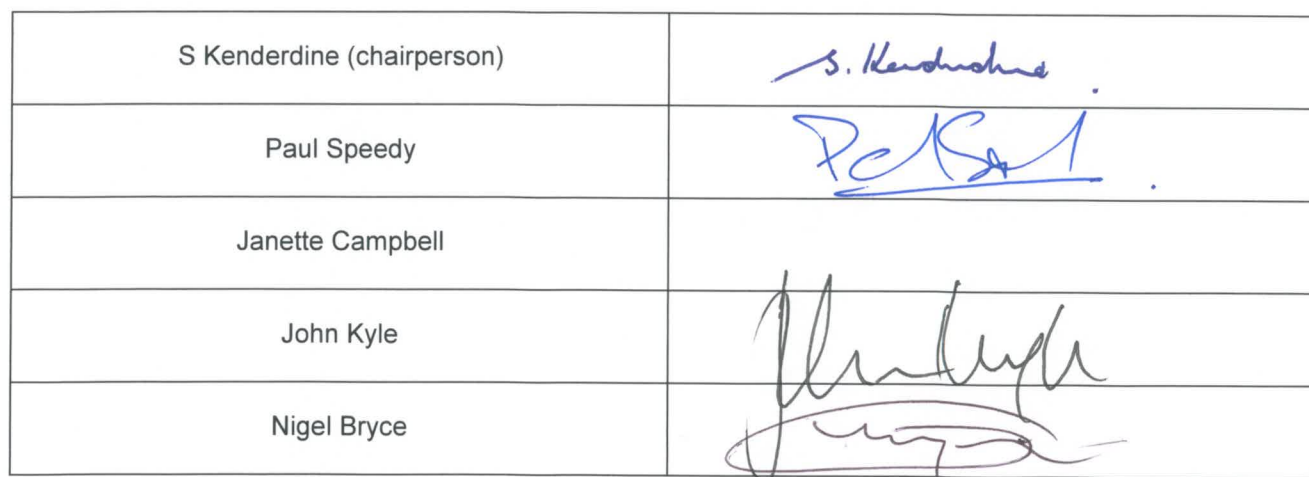 S Kenderdine (chairperson)
S. Kenderdine
Paul Speedy
Janette Campbell
John Kyle
John Kyle
Nigel Bryce